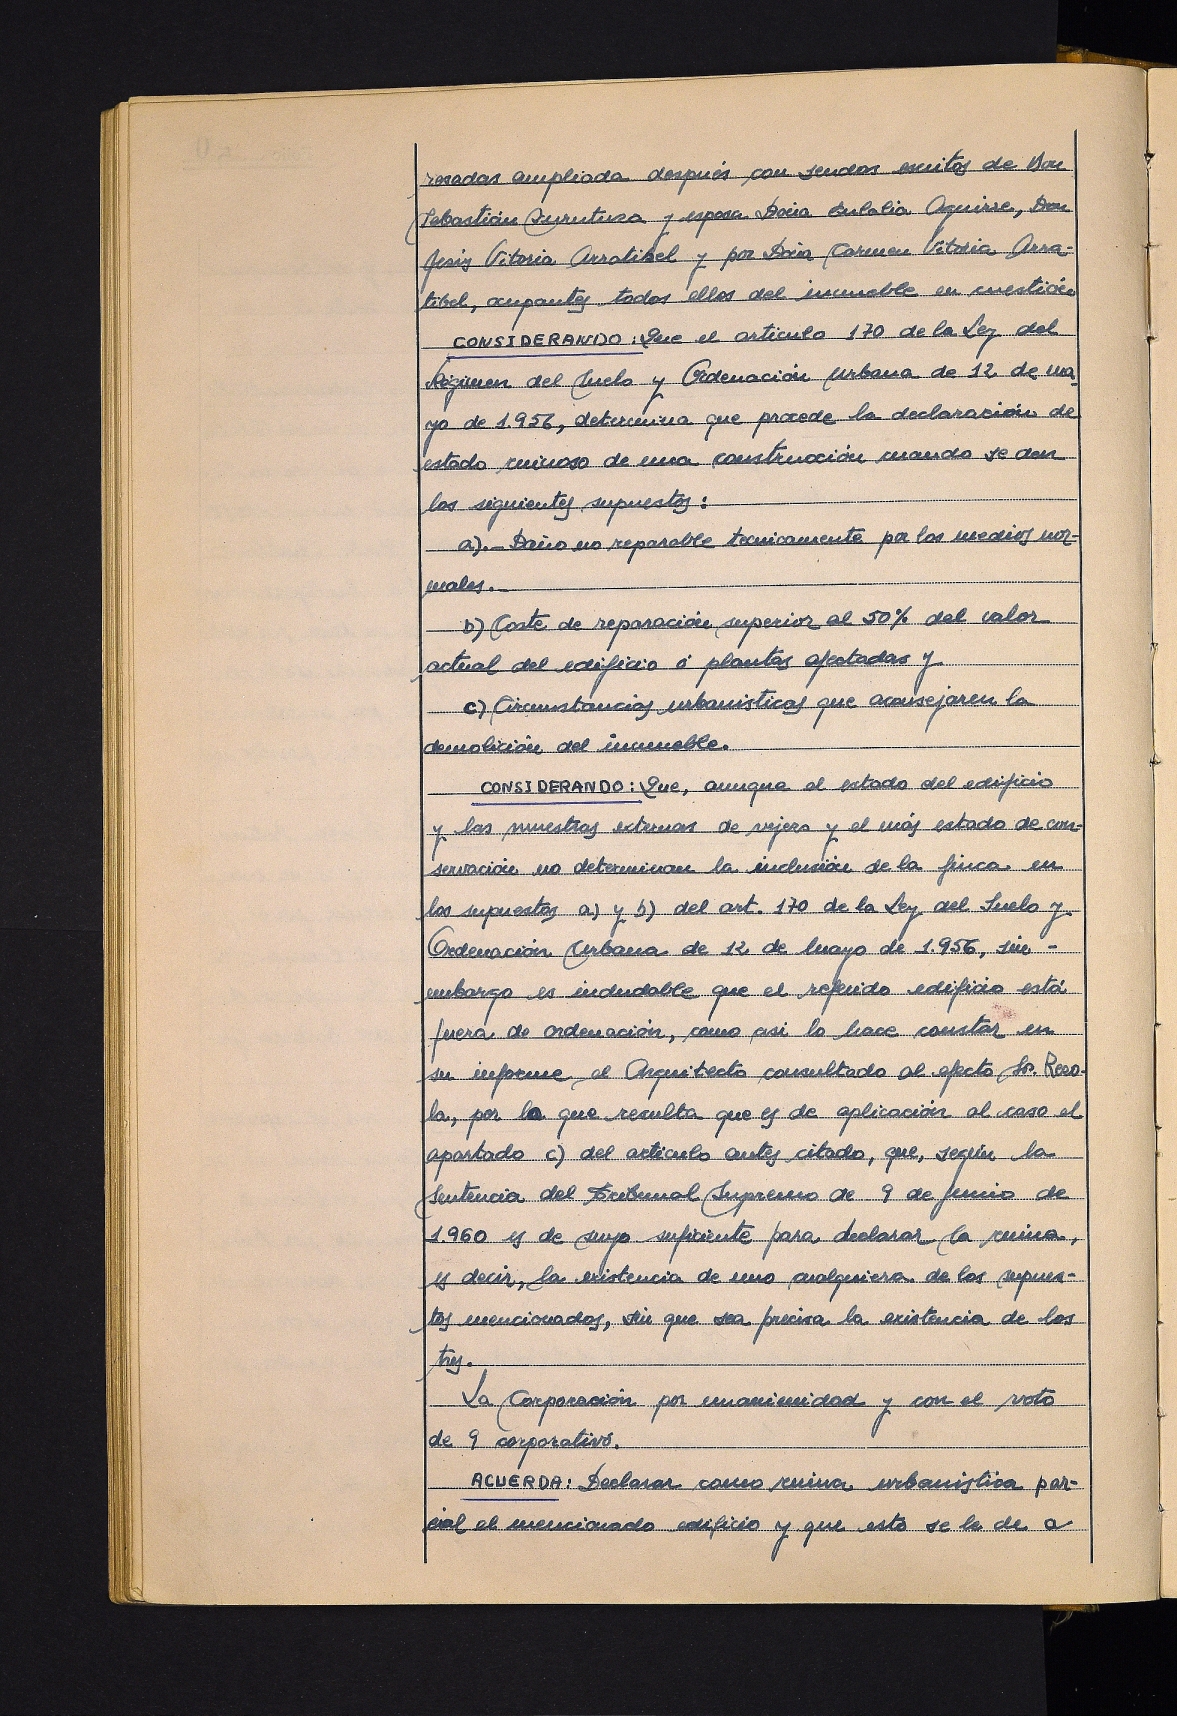 resadas ampliada después con sendos escritos de Don
Sebastián Zurutuza y esposa Doña Eulalia Aguirre, Don
Jesús Vitoria Arratibel y por Doña Carmen Vitoria Arra-
tibel, ocupantes todos ellos del inmueble en cuestión
CONSIDERANDO: Que el articulo 170 de la Ley del
Régimen del Suelo y Ordenación Urbana de 12 de ma-
yo de 1.956, determina que procede la declaración de
estado ruinoso de una construcción cuando se den
los siguientes supuestos:
a).- Daño no reparable tecnicamente por los medios nor-
males.-
b) Coste de reparación superior al 50% del valor
actual del edificio ó plantas afectadas y
c) Circunstancias urbanisticas que aconsejaren la
demolición del inmueble.
CONSIDERANDO: Que, aunque el estado del edificio
y las muestras externas de vejera y el más estado de con-
servación no determinan la inclusión de la finca en
los supuestos a) y b) del art. 170 de la Ley del Suelo y
Ordenación Urbana de 12 de Mayo de 1.956, sin -
embargo es indudable que el referido edificio está
fuera de ordenación, como asi lo hace constar en
su informe el Arquitecto consultado al efecto Sr. Reco-
la, por lo que resulta que es de aplicación al caso el
apartado c) del articulo antes citado, que, según la
Sentencia del Tribunal Supremo de 9 de Junio de
1.960 es de suyo suficiente para declarar la ruina,
es decir, la existencia de uno cualquiera de los supues-
tos mencionados, sin que sea precisa la existencia de los
tres.
La Corporación por unanimidad y con el voto
de 9 corporativos.
ACUERDA: Declarar como ruina urbanistica par-
cial el mencionado edificio y que esto se le de a